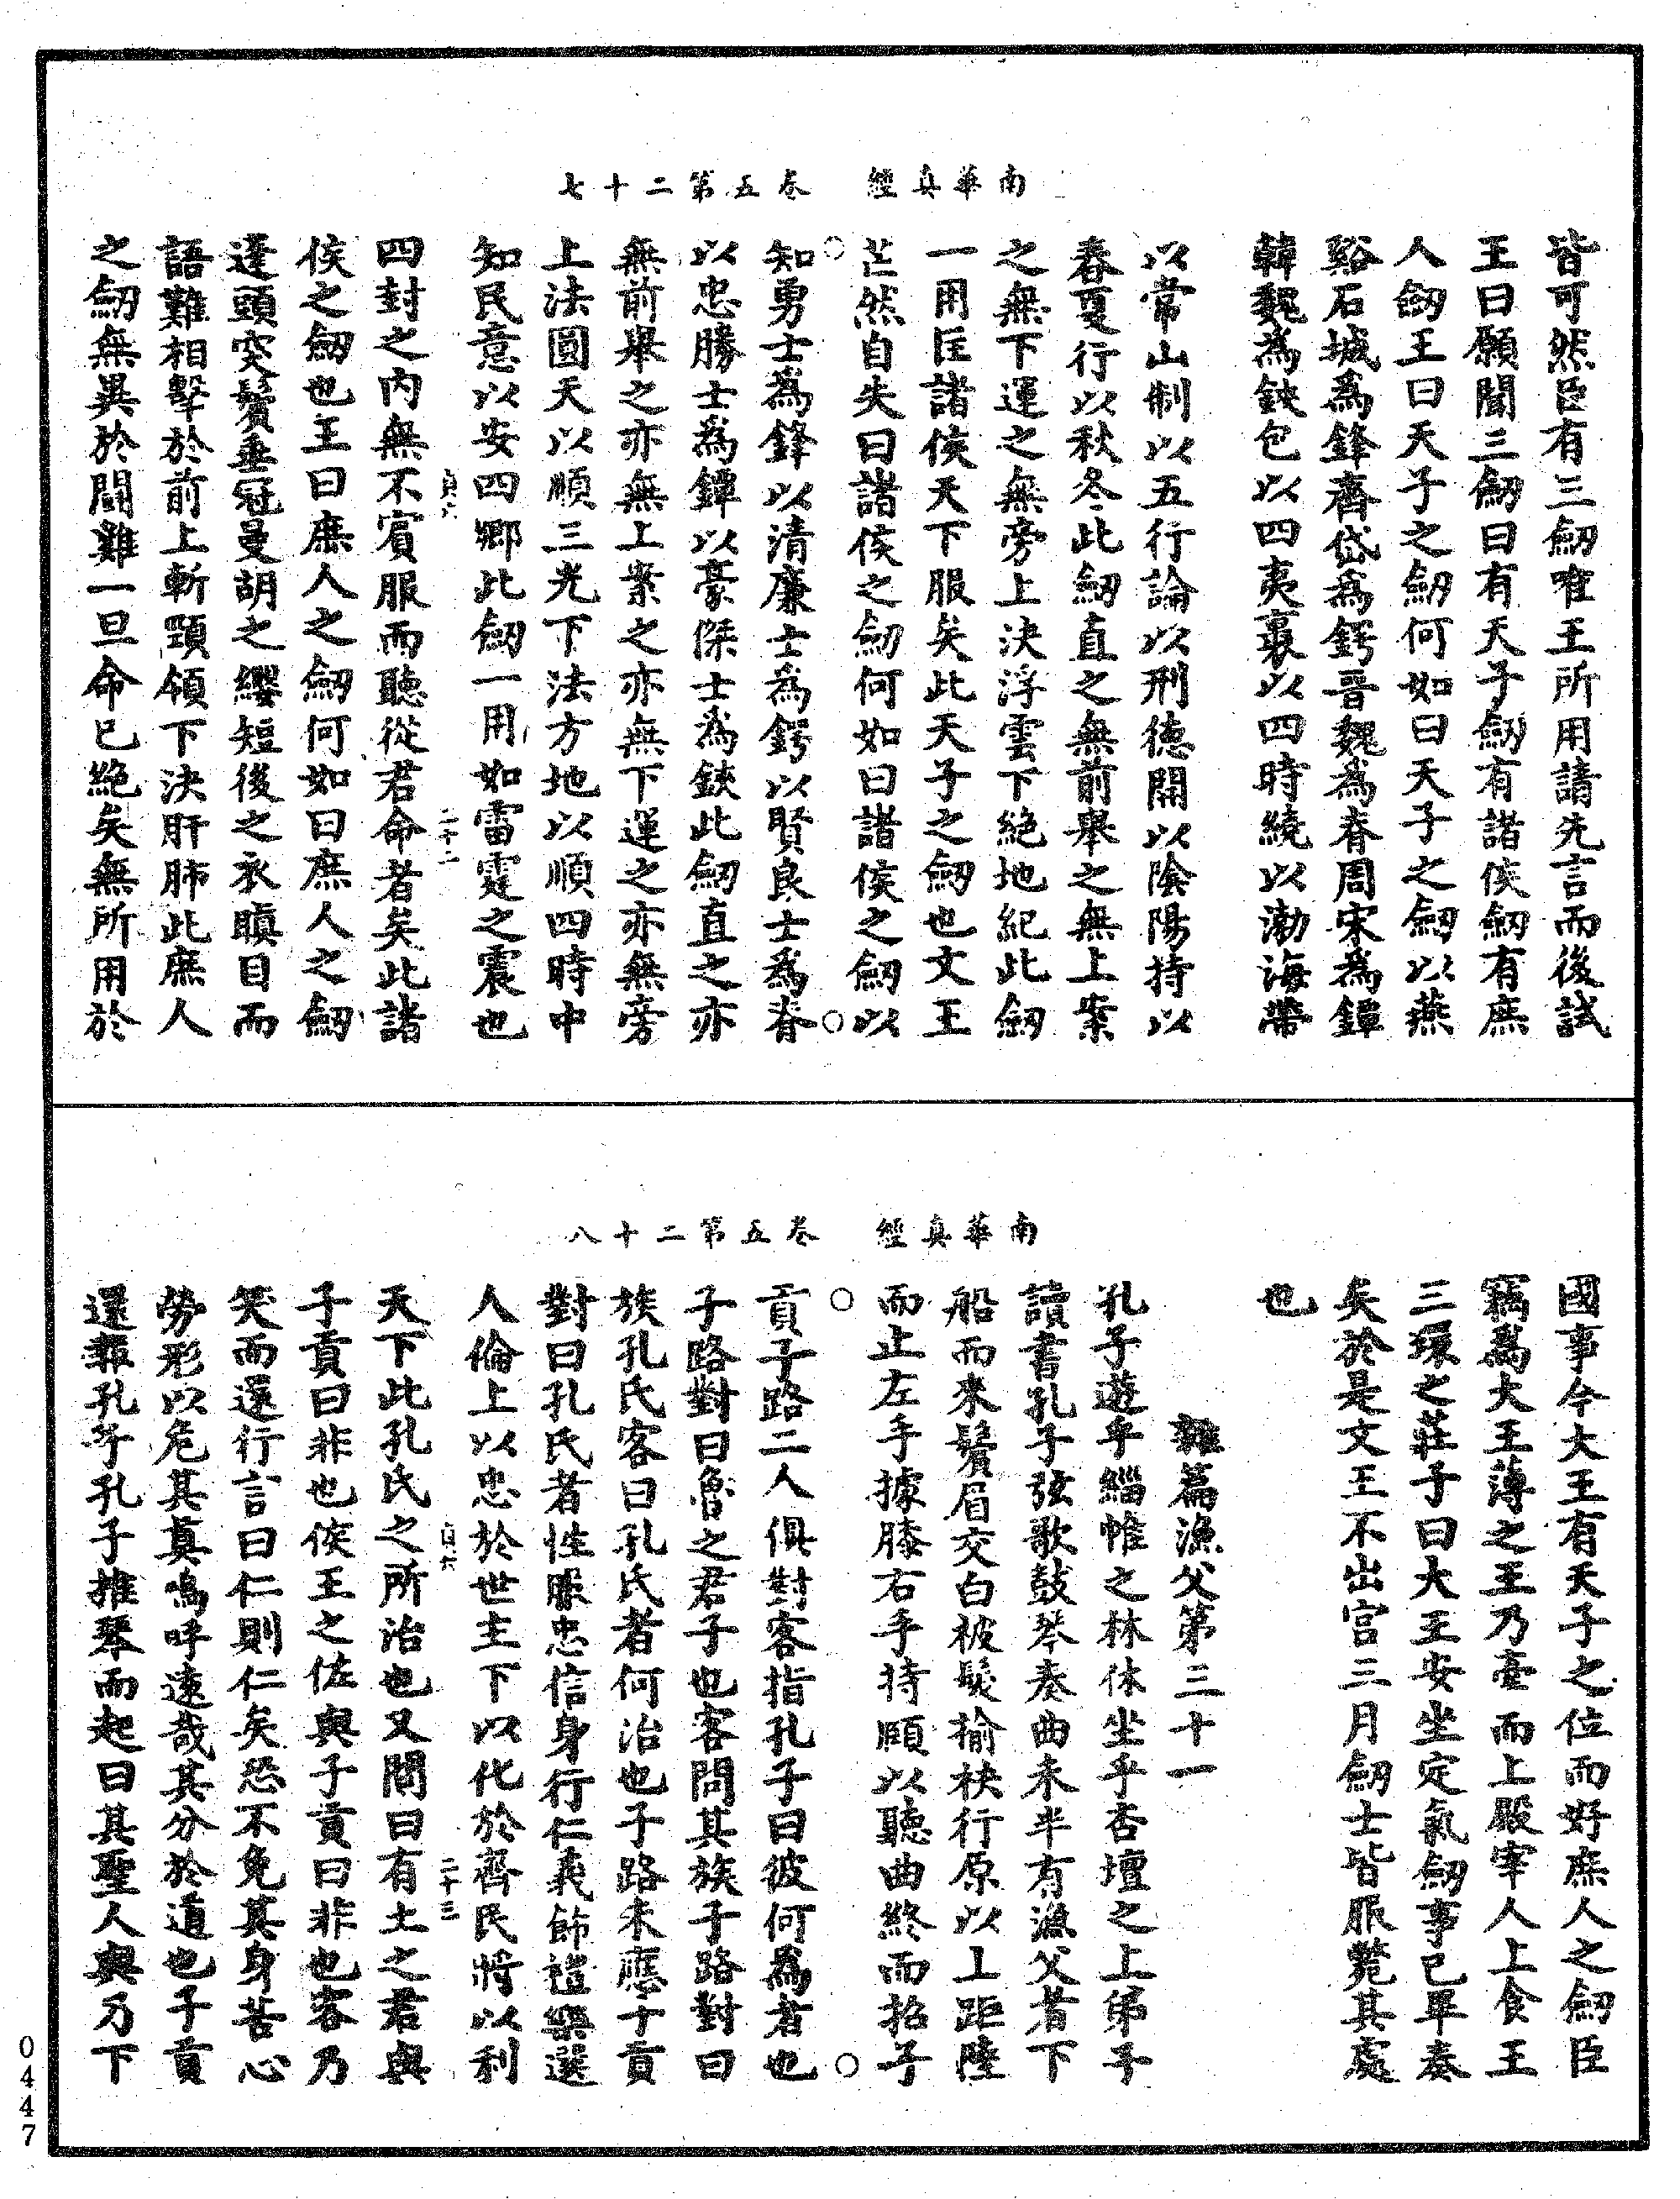 南華真經　卷五第二十七
皆可然臣有三劒唯王所用請先言而後試
王曰願聞三劒曰有天子劒有諸侯劒有庶
人劒王曰天子之劒何如曰天子之劒以燕
谿石城為鋒齊岱為鍔晉魏為脊周宋為鐔
韓魏為鋏包以四夷裹以四時繞以渤海帶
以常山制以五行論以刑德開以陰陽持以
春夏行以秋冬此劒直之無前舉之無上案
之無下運之無旁上決浮雲下絕地紀此劒
一用匡諸侯天下服矣此天子之劒也文王
芒然自失曰諸侯之劒何如曰諸侯之劒以
知勇士為鋒以清廉士為鍔以賢良士為脊
以忠勝士為鐔以豪傑士為鋏此劒直之亦
無前舉之亦無上案之亦無下運之亦無旁
上法圓天以順三光下法方地以順四時中
知民意以安四鄉此劒一用如雷霆之震也
貞六　二十二
四封之內無不賓服而聽從君命者矣此諸
侯之劒也王曰庶人之劒何如曰庶人之劒
蓬頭突鬢垂冠曼胡之纓短後之衣瞋目而
語難相擊於前上斬頸領下決肝肺此庶人
之劒無異於鬬雞一旦命已絕矣無所用於
南華真經　卷五第二十八
國事今大王有天子之位而好庶人之劒臣
竊為大王薄之王乃牽而上殿宰人上食王
三環之莊子曰大王安坐定氣劒事已畢奏
矣於是文王不出宮三月劒士皆服斃其處
也
雜篇漁父第三十一
孔子遊乎緇帷之林休坐乎杏壇之上弟子
讀書孔子弦歌鼓琴奏曲未半有漁父者下
船而來鬚眉交白被髮揄袂行原以上距陸
而止左手據膝右手持頤以聽曲終而招子
貢子路二人俱對客指孔子曰彼何為者也
子路對曰魯之君子也客問其族子路對曰
族孔氏客曰孔氏者何治也子路未應子貢
對曰孔氏者性服忠信身行仁義飾禮樂選
人倫上以忠於世主下以化於齊民將以利
貞六　二十三
天下此孔氏之所治也又問曰有土之君與
子貢曰非也侯王之佐與子貢曰非也客乃
笑而還行言曰仁則仁矣恐不免其身苦心
勞形以危其真嗚呼遠哉其分於道也子貢
還報孔子孔子推琴而起曰其聖人與乃下
0447